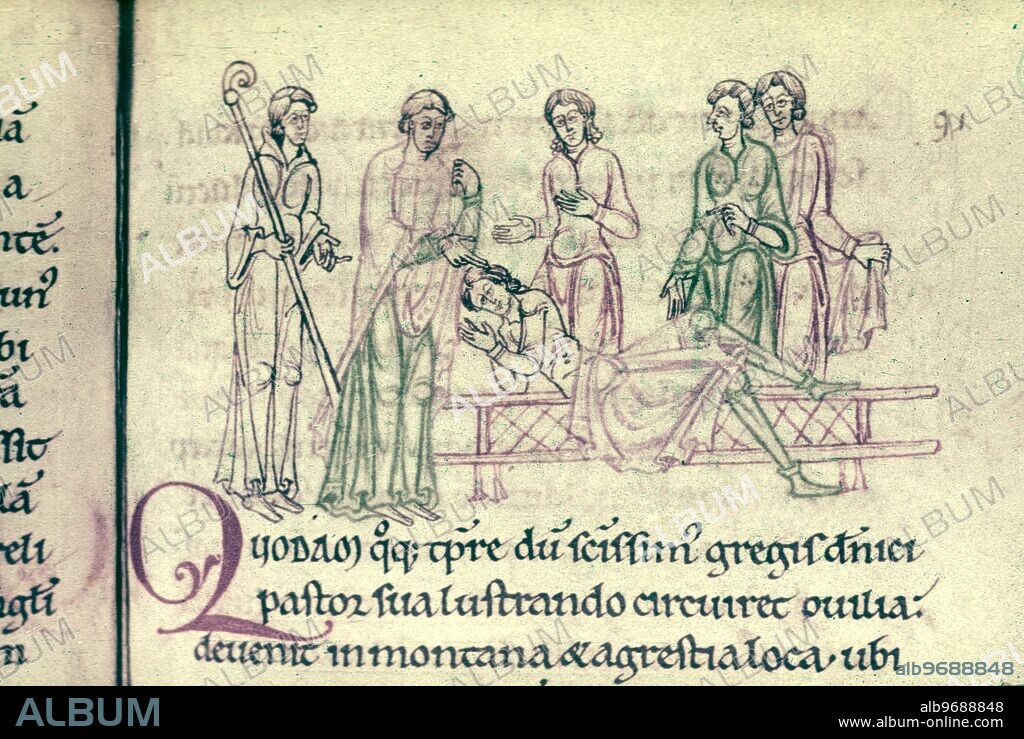 ā
a
ntē.
unˀ
bi
ā
sst
cā
reli
ngłi
Quodam q̊q; tp̄re dū sc̄issimˀ gregis dn̄ici
pastor sua lustrando circuiret ovilia:
devenit in montana & agrestia loca. ubi
ALBUM
alb9688848
ALBUM
alb9688848
www.album-online.com